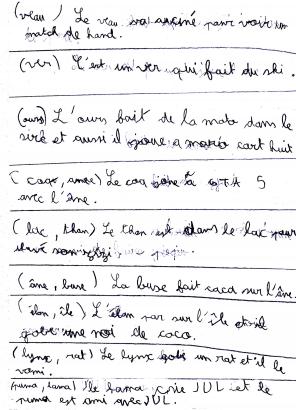 (veau) Le veau va au ciné pour voir un
match de hand.
(ver) C'est un ver qui fait du ski.
(ours) L'ours fait de la moto dans le
et aussi il joue a mario cart huit
(coq, ane) Le coq joue à GTA 5
avec l'âne.
(lac, thon) Le thon est dans le lac pour
son
(âne, buse) La buse fait caca sur l'âne.
(élan, île) L'élan par sur l'île et il
gobe une noi de coco.
(lynx, rat) Le lynx gobe un rat et il le
vomi.
(puma, lama) le lama crie JUL et le
puma est ami avec JUL.